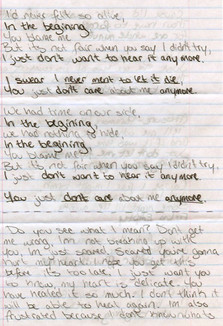 I'd never felt so alive,
In the begining,
You blame me
But it's not fair when you say I didn't try,
I just don't want to hear it any more.
I swear I never ment to let it die,
You just don't care about me anymore.
We had time on our side,
In the begining,
We had nothing to hide,
In the begining,
You blame me
But it's not fair when you say I didn't try,
I just don't want to hear it anymore.
You just dont care about me anymore.
Do you see what I mean? Dont get
me wrong, Im not breaking up with
you, Im just scared. Scared you're gonna
my heart. I hope you get it
before its too late. I just want you
to know, my heart is delicate. You
have healed it so much. I don't think it
will be able to heal again. Im also
frustrated because I don't know